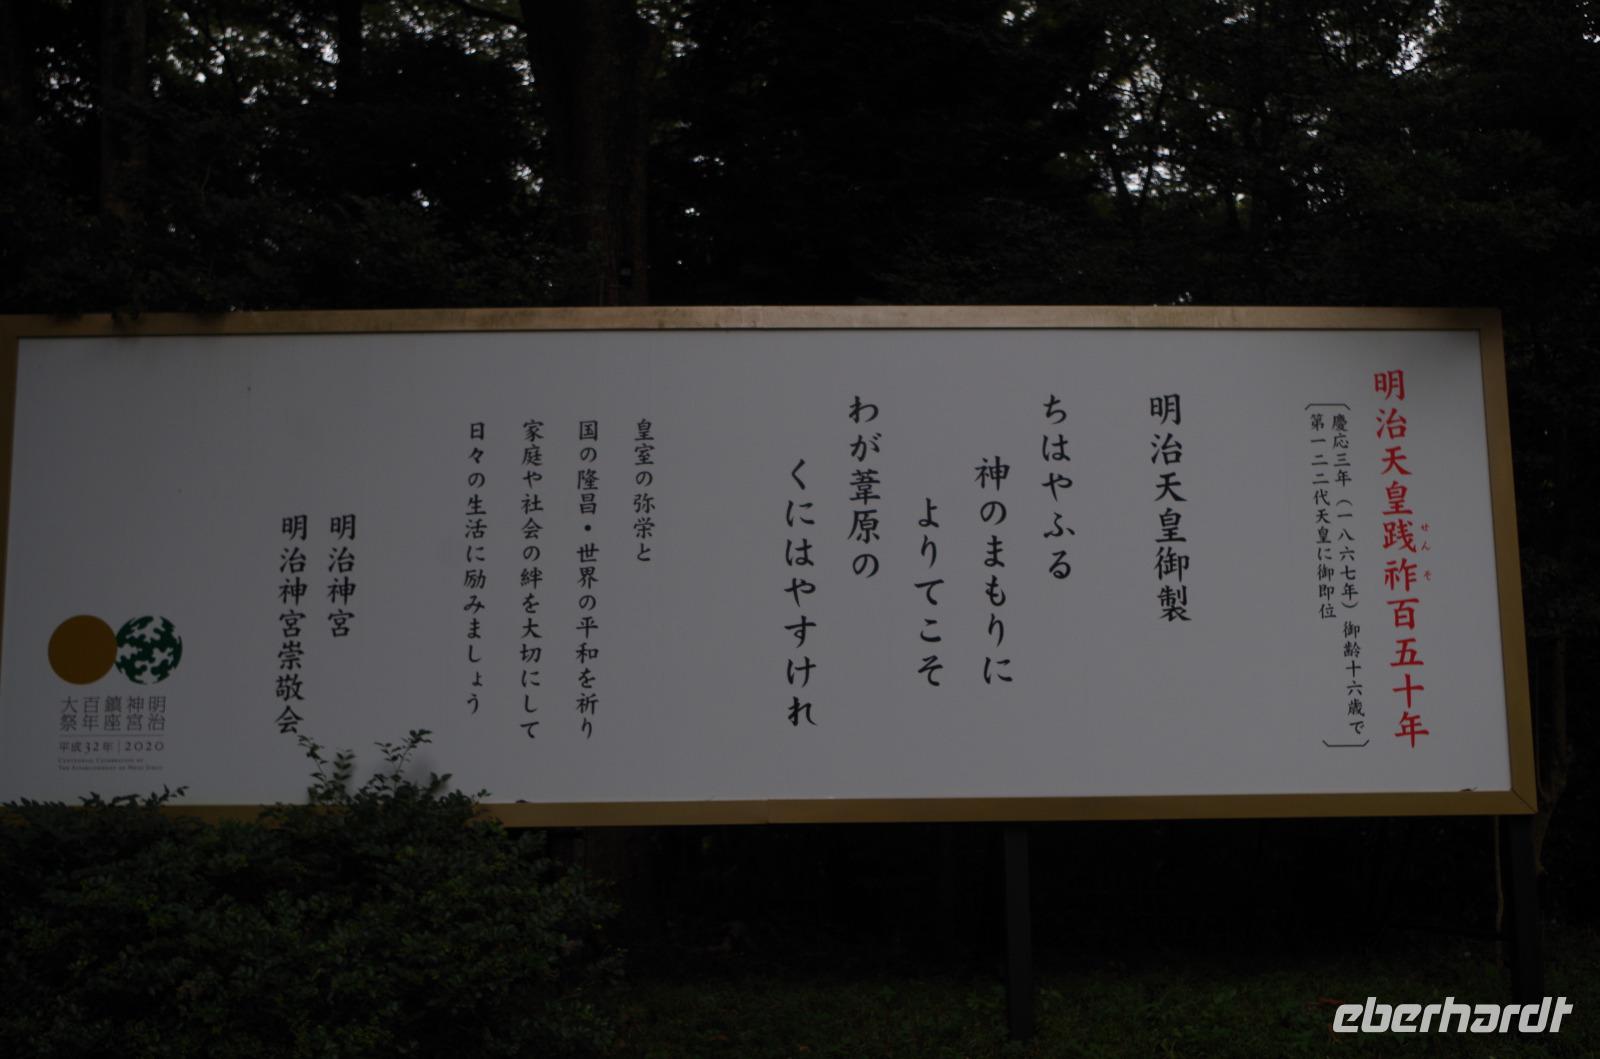 明治天皇践祚百五十年
せんそ
慶応三年（一八六七年）御齢十六歳で
第一二二代天皇に御即位
明治天皇御製
ちはやふる
神のまもりに
よりてこそ
わが葦原の
くにはやすけれ
皇室の弥栄と
国の隆昌・世界の平和を祈り
家庭や社会の絆を大切にして
日々の生活に励みましょう
明治神宮
明治神宮崇敬会
明治
神宮
鎮座
百年
大祭
平成32年|2020
Centennial Celebration of
The Establishment of Meiji Jingu
eberhardt